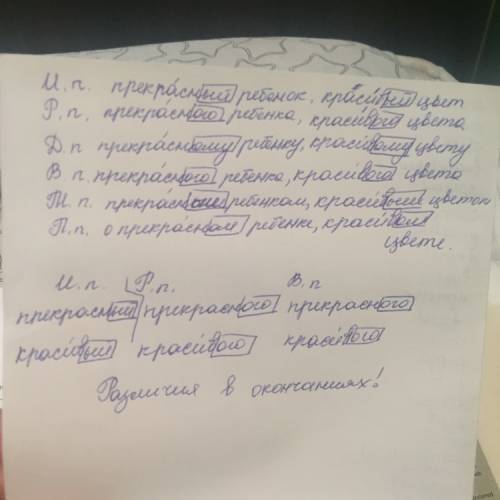 И.п. прекра́сный ребенок, краси́вый цвет
Р.п. прекра́сного ребенка, краси́вого цвета
Д.п прекра́сному ребенку, краси́вому цвету
В.п. прекра́сного ребенка, краси́вого цвета
Т.п. прекра́сным ребенком, краси́вым цветом
П.п. о прекра́сном ребенке, краси́вом
цвете.
И.п. Р.п. В.п
прекрасный прекрасного прекрасного
краси́вый краси́вого краси́вого
Различия в окончаниях!